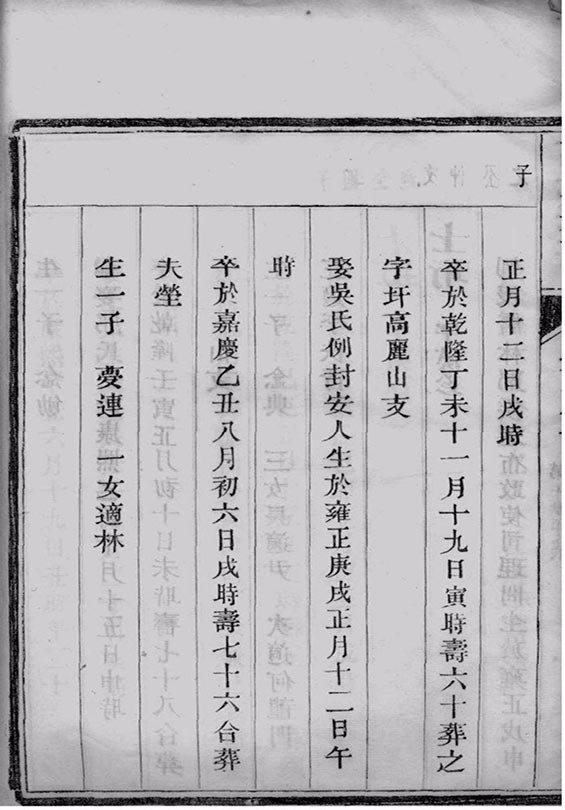 子
正月十二日戌時
卒於乾隆丁未十一月十九日寅時壽六十葬之
字圩高麗山支
娶吳氏例封安人生於雍正庚戌正月十二日午
時
卒於嘉慶乙丑八月初六日戌時壽七十六合葬
夫塋
生一子夢連一女適林